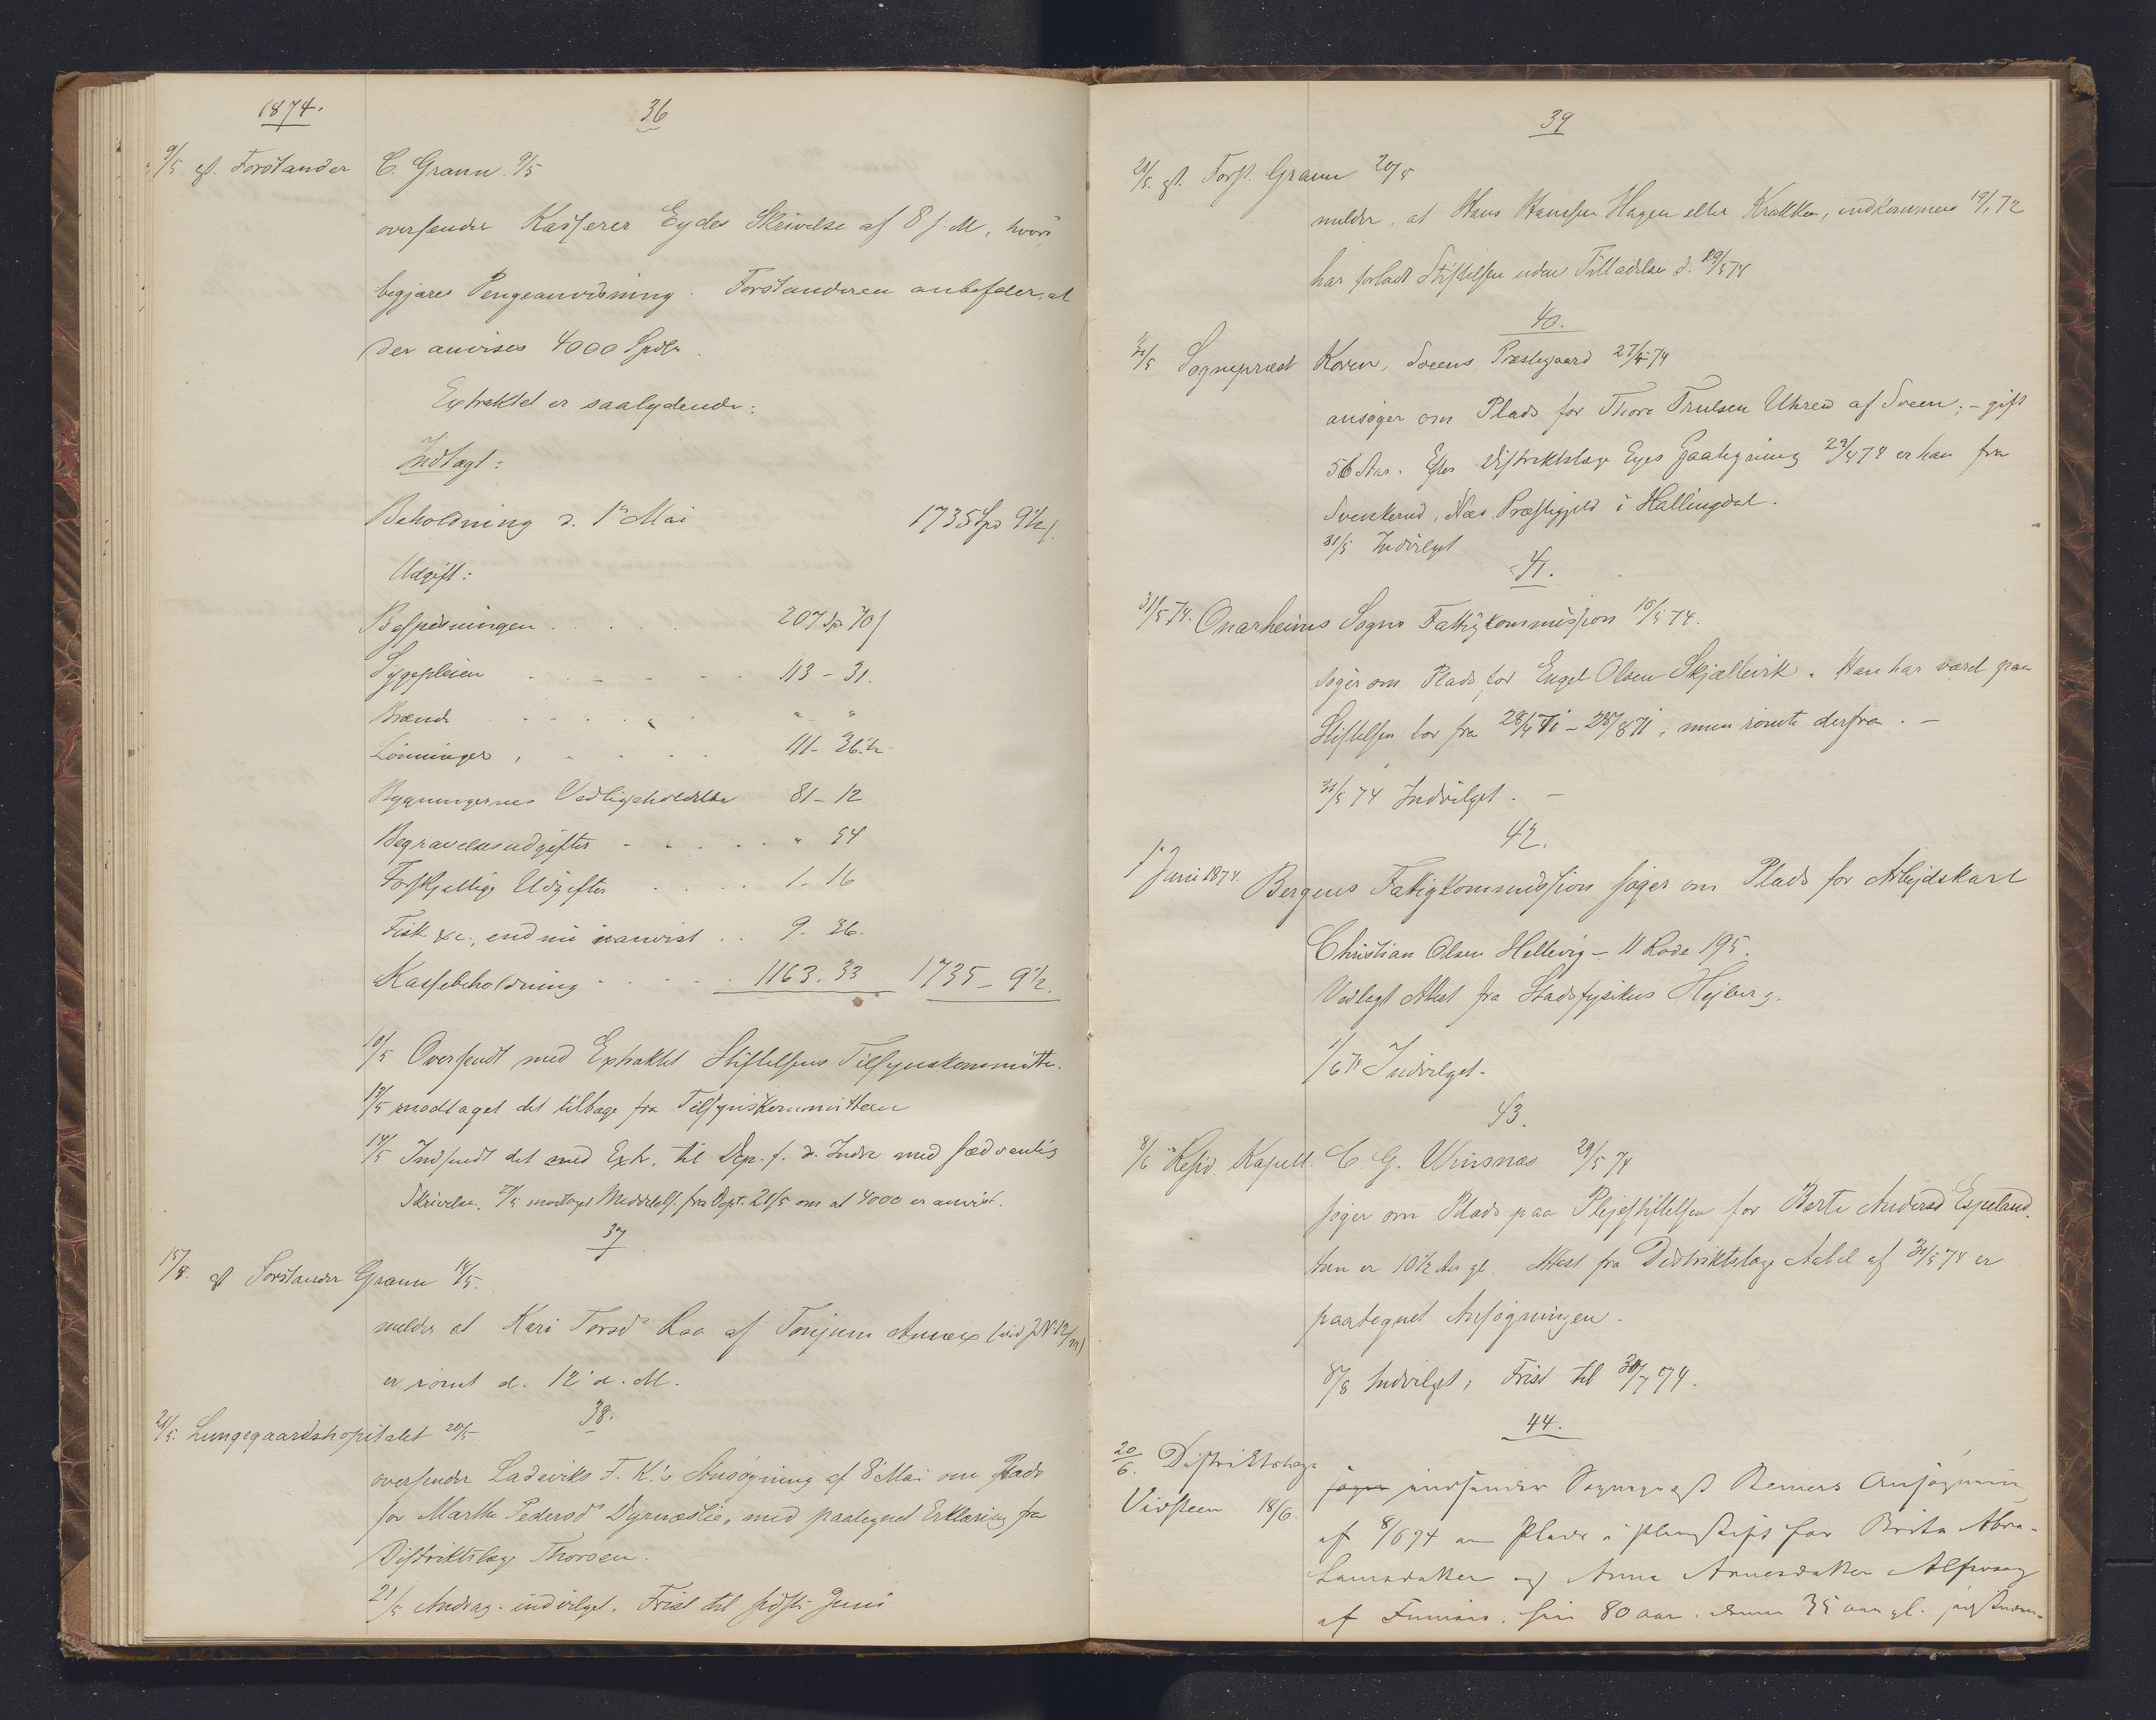 1874.
36
9/5. gst. Forstander C. Grann 9/5
oversender Kasserer Eydes Skrivelse af 8 f. M., hvori
begjæres Pengeanvisning. Forstanderen anbefaler, at
der anvises 4000 Spdlr.
Extraktet er saalydende:
Indtægt:
Beholdning d. 1ste Mai 1735 Spd 9½ s.
Udgift:
Bespisningen 207 Sp 70 s
Sygepleien 113 - 31.
Brænde " "
Lønninger 111 - 36½
Bygningernes Vedligeholdelse 81 - 12
Begravelsesudgifter " 54
Forskjellige Udgifter 1 - 16
Fisk &c., endnu uanvist 9. 36.
Kassebeholdning 1163. 33 1735 - 9½.
10/5 Oversendt med Extraktet Stiftelsens Tilsynskommitte.
13/5 modtaget det tilbage fra Tilsynskommitteen
14/5 Indsendt det med Extr. til Dep. f. d. Indre med sædvanlig
Skrivelse. modtaget Meddelels. fra Dept. 21/5 om at 4000 er anvist.
37
15/5. gst Forstander Grann 14/5.
melder at Kari Torsdr Raa af Tonjum Annex
er rømt d. 12 d. M.
38.
21/5. Lungegaardshospitalet 20/5
oversender Ladeviks F. K.'s Ansøgning af 8 Mai om Plads
for Marthe Pedersdr Dyrnæslie, med paategnet Erklæring fra
Distriktslæge Thoresen.
21/5 Andrag. indvilget. Frist til sidste Juni
39
21/5. gst. Forst. Grann 20/5
melder, at Hans Hansen Hagen eller Krakken, indkommen 19/1 72
har forladt Stiftelsen uden Tilladelse d. 19/5 74
40.
31/5 Sogneprest Koren, Sveens Præstegaard 27/5 74
ansøger om Plads for Thore Trulsen Uhren af Sveen; - gift
56 Aar. Efter Distriktslæge Eyes Paategning 29/4 74 er han fra
Svenkerud, Næs Præstegjeld i Hallingdal.
31/5 Indvilget
41.
31/5 74. Onarheims Sogns Fattigkommission 10/5 74.
søger om Plads for Engel Olsen Skjællevik. Han har været paa
Stiftelsen før fra 28/4 71 - 28/8 71, men rømte derfra. -
31/5 74 Indvilget. -
42.
1 Juni 1874. Bergens Fattigkommission søger om Plads for Arbejdskarl
Christian Olsen Hellevig - 11 Rode 195.
Vedlagt Attest fra Stadsfysikus Hejberg.
1/6 74 Indvilget.
43.
8/6 Resid. Kapell. C. G. Winsnæs 29/5 74
søger om Plads paa Plejestiftelsen for Berte Andersd Espeland.
hun er 10½ Aar gl. Attest fra Distriktslæge Aabel af 31/5 74 er
paategnet Ansøgningen.
8/6 Indvilget, Frist til 30/7 74.
44.
20/6. Distriktslæge
Vidsteen 18/6.
søger indsender Sognepræst Reiners Ansøgning
af 8/6 74 om Plads i Pleiestift. for Brita Abra-
hamsdatter og Anna Arnesdatter Alfsvaag
af Finnaas. hin 80 aar. denne 35 aar gl.